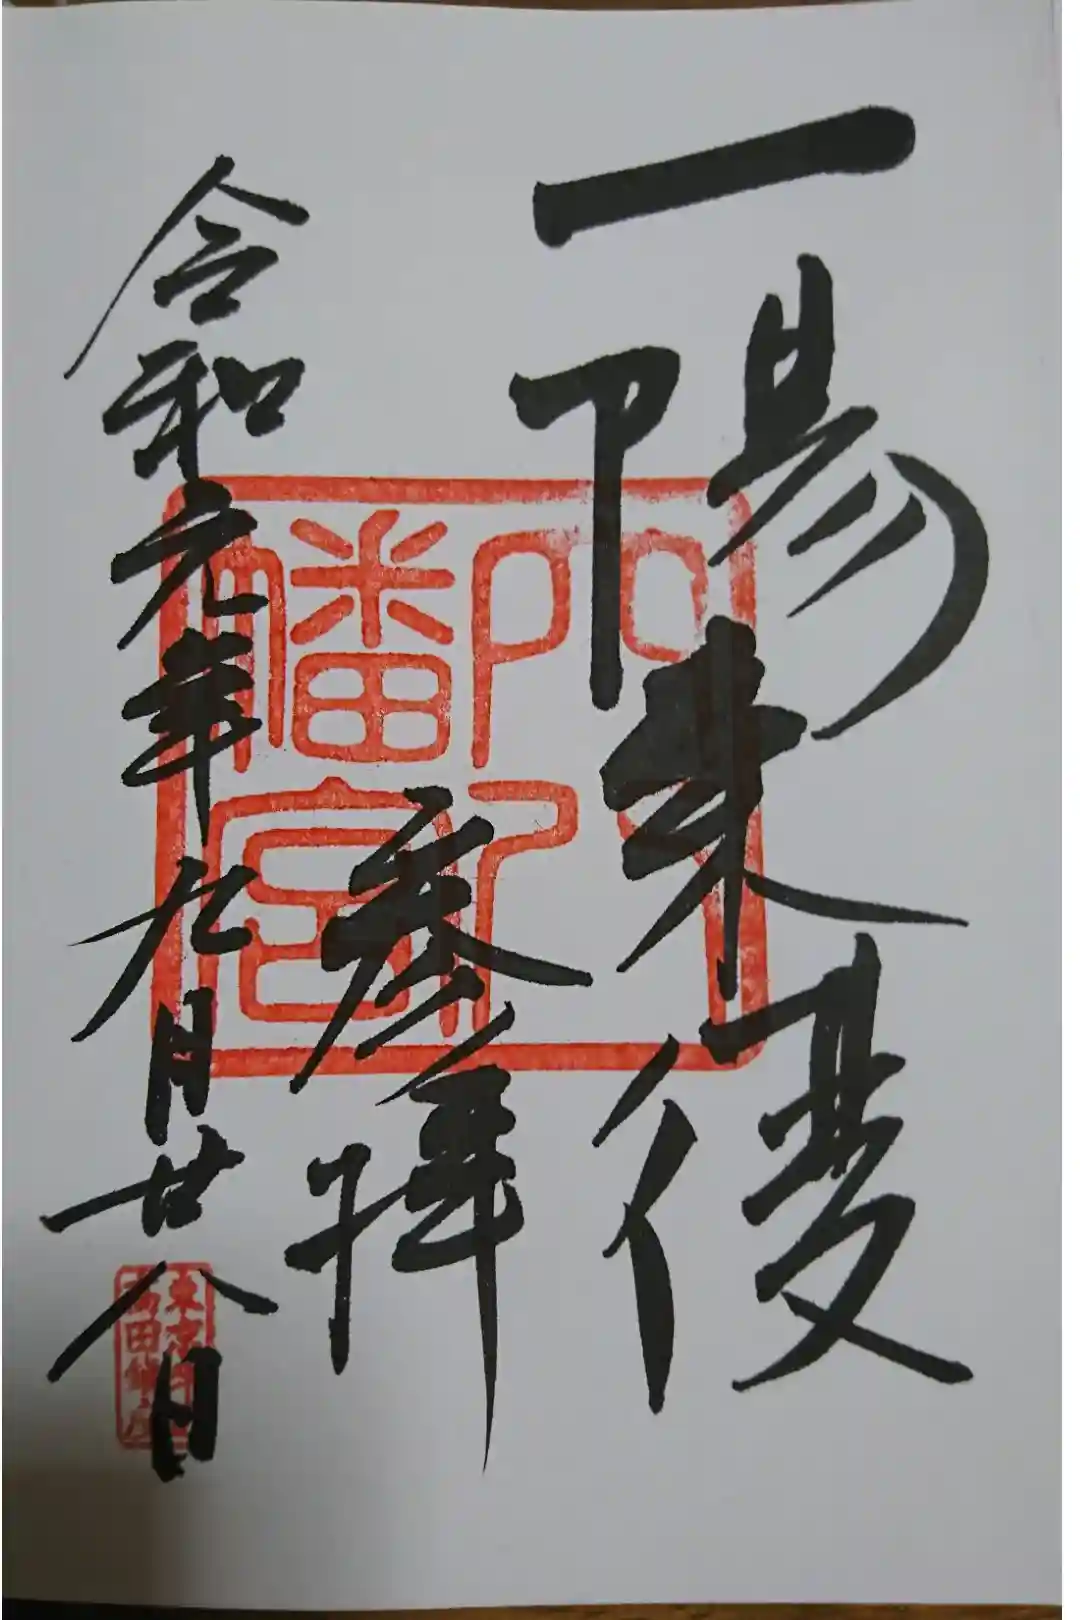 一陽来復
参拝
令和元年九月廿八日
穴八
幡宮
東京牛込
高田鎮座